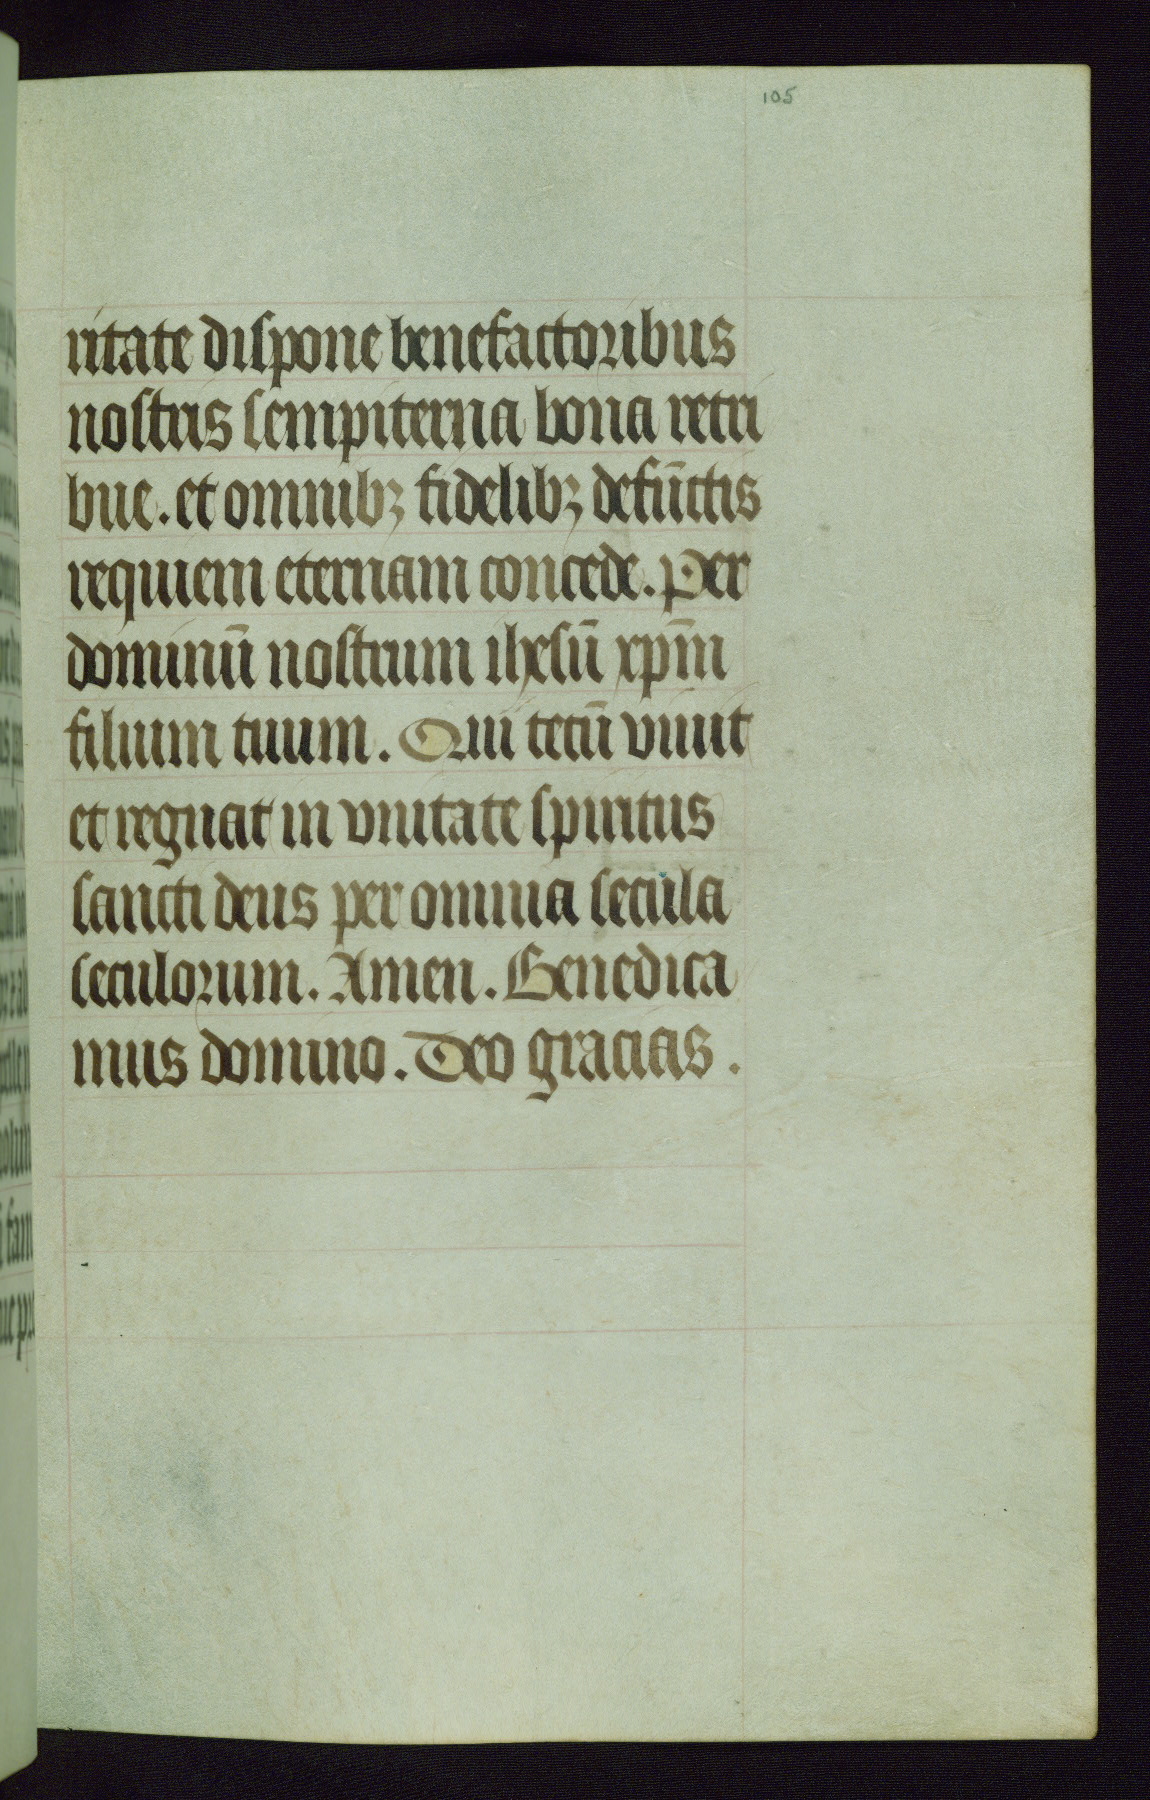 105
ritate dispone benefactoribus
nostris sempiterna bona retri
bue. et omnibꝫ fidelibꝫ defūctis
requiem eternam concede. Per
dominū nostrum ihesū xp̄m
filium tuum. Qui tecū viuit
et regnat in vnitate spiritus
sancti deus per omnia secula
seculorum. Amen. Benedica
mus domino. Deo gracias.